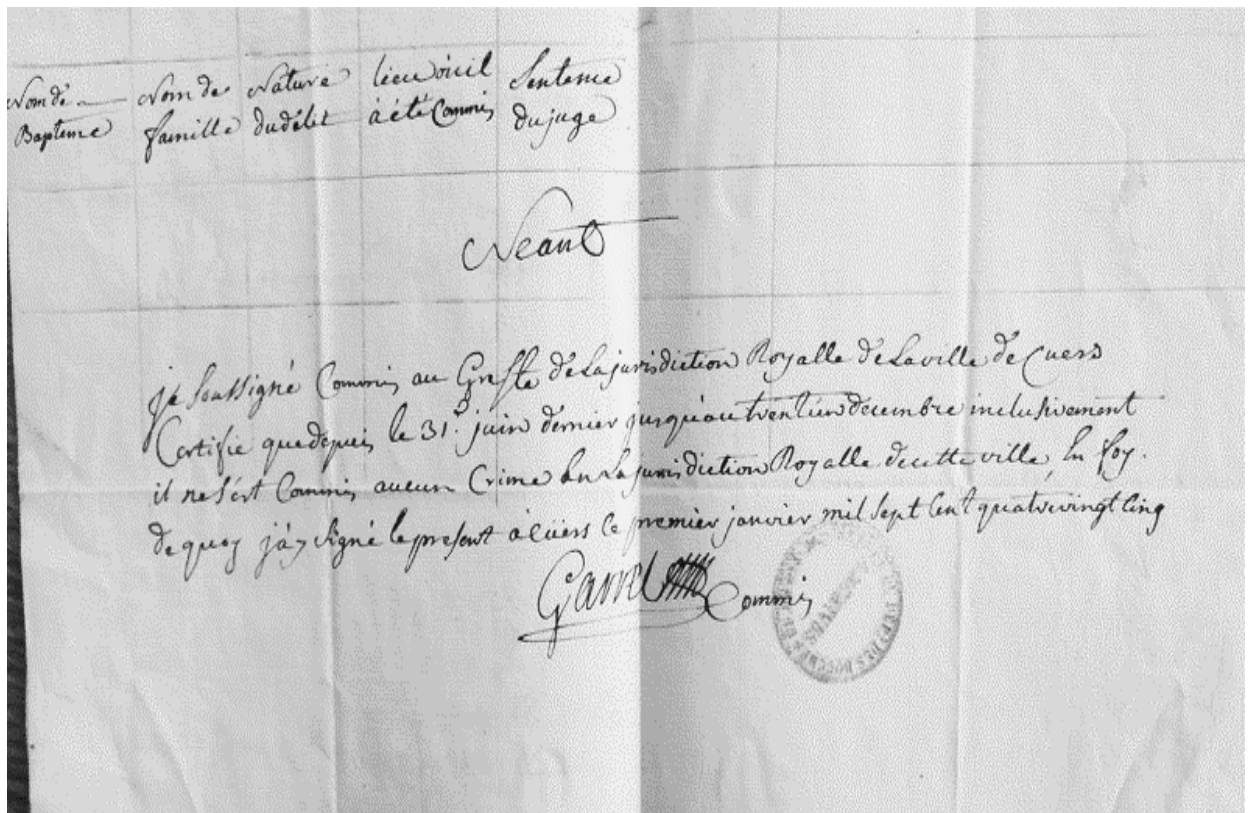 Nom de Nom de Nature lieu où il Sentence
Bapteme famille du délit à été Commis du juge
Neant
je soussigné Commis au Greffe de la jurisdiction Royalle de la ville de Cuers
Certifie que depuis le 31. juin dernier jusqu'au trente un decembre inclusivement
il ne s'est Commis aucun Crime en la jurisdiction Royalle de cette ville, En foy
de quoy j'ay signé le present à Cuers le premier janvier mil sept cent quatre vingt cinq
Commis